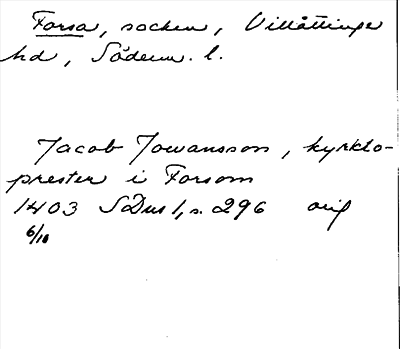 Forsa, socken, Villåttinge
hd, Söderm. l.
Jacob Jowansson, kyrkto-
prester i Forsom
1403 SDns 1, s. 296 orig
6/10